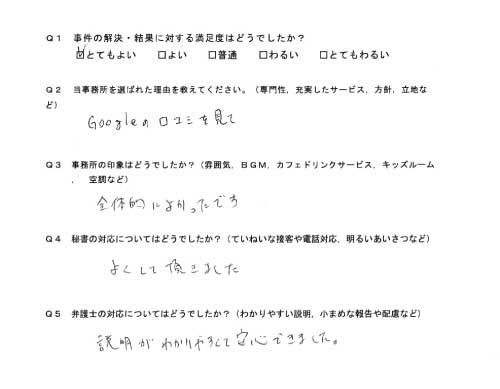 Q１　事件の解決・結果に対する満足度はどうでしたか？
☑とてもよい　□よい　□普通　□わるい　□とてもわるい
Q２　当事務所を選ばれた理由を教えてください。（専門性，充実したサービス，方針，立地な
ど）
Googleの口コミを見て
Q３　事務所の印象はどうでしたか？（雰囲気，ＢＧＭ，カフェドリンクサービス，キッズルーム
，　空調など）
全体的によかったです
Q４　秘書の対応についてはどうでしたか？（ていねいな接客や電話対応，明るいあいさつなど）
よくして頂きました
Q５　弁護士の対応についてはどうでしたか？（わかりやすい説明，小まめな報告や配慮など）
説明がわかりやすくて安心できました。